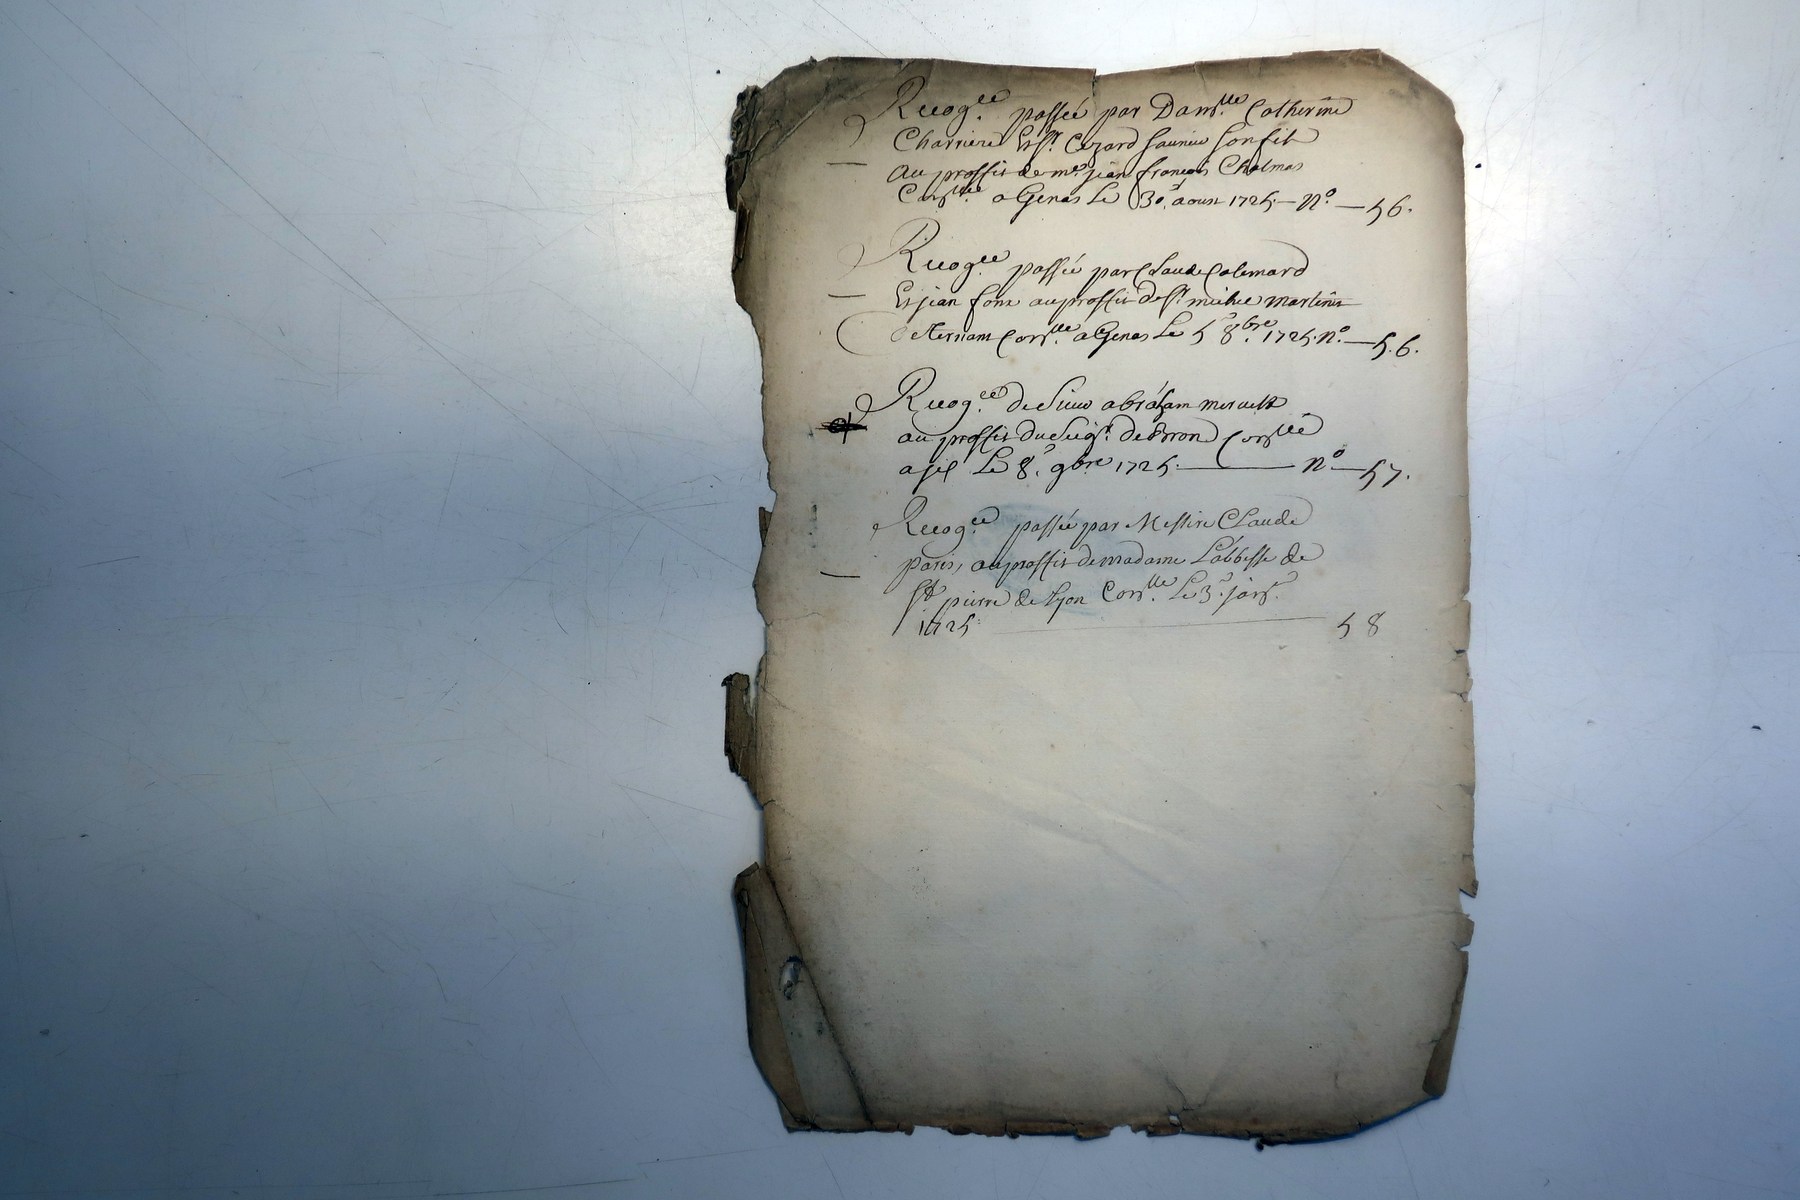 Recog.ce passée par Dam.lle Catherine
Charriere Et Sr. Cezard Saunier son fils
au proffit de me. jean françois Chalmas
Con.lle a Genas Le 30e. aoust 1725 — N.o — 56.
Recog.ce passée par Claude Colemard
Et jean font au proffit de Sr. michel martin
de ternant Con.lle a Genas Le 5e 8.bre 1725. N.o — 56.
Recog.ce de Sieur abraham
au proffit du Seig.r de Bron Con.lle
a Le 8e. 9bre 1725 — N.o — 57.
Recog.ce passée par Messire Claude
paris, au proffit de madame L'abbesse de
St. pierre de Lyon Con.lle Le 3e.
1725 — 58